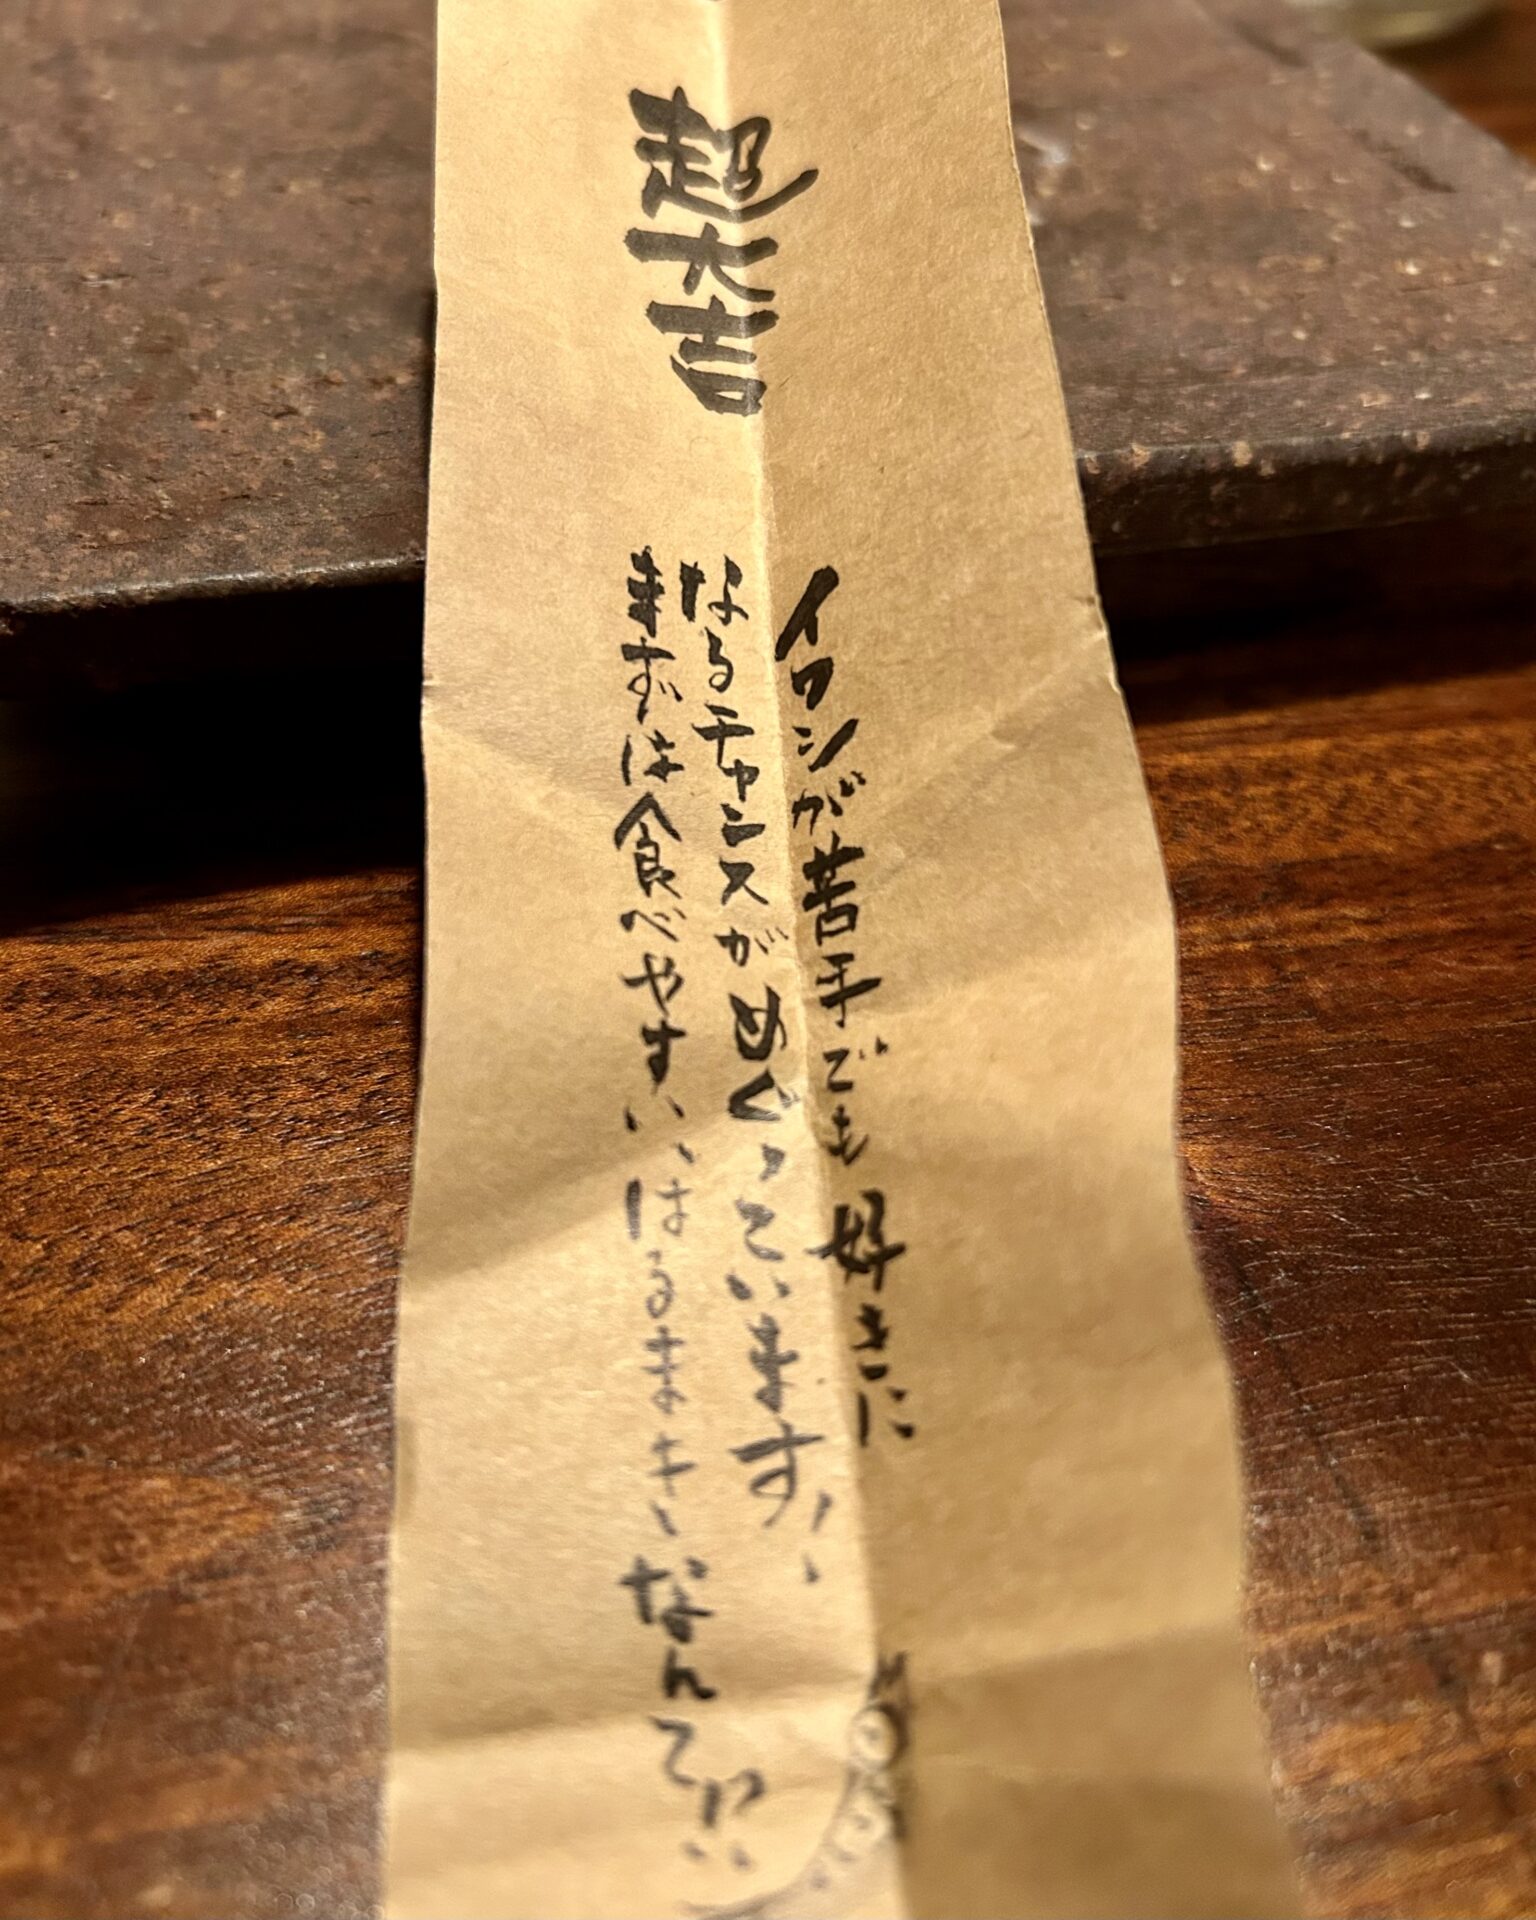 超大吉
イワシが苦手でも好きに
なるチャンスがめぐっています!
まずは食べやすい、はるまき、なんて!!